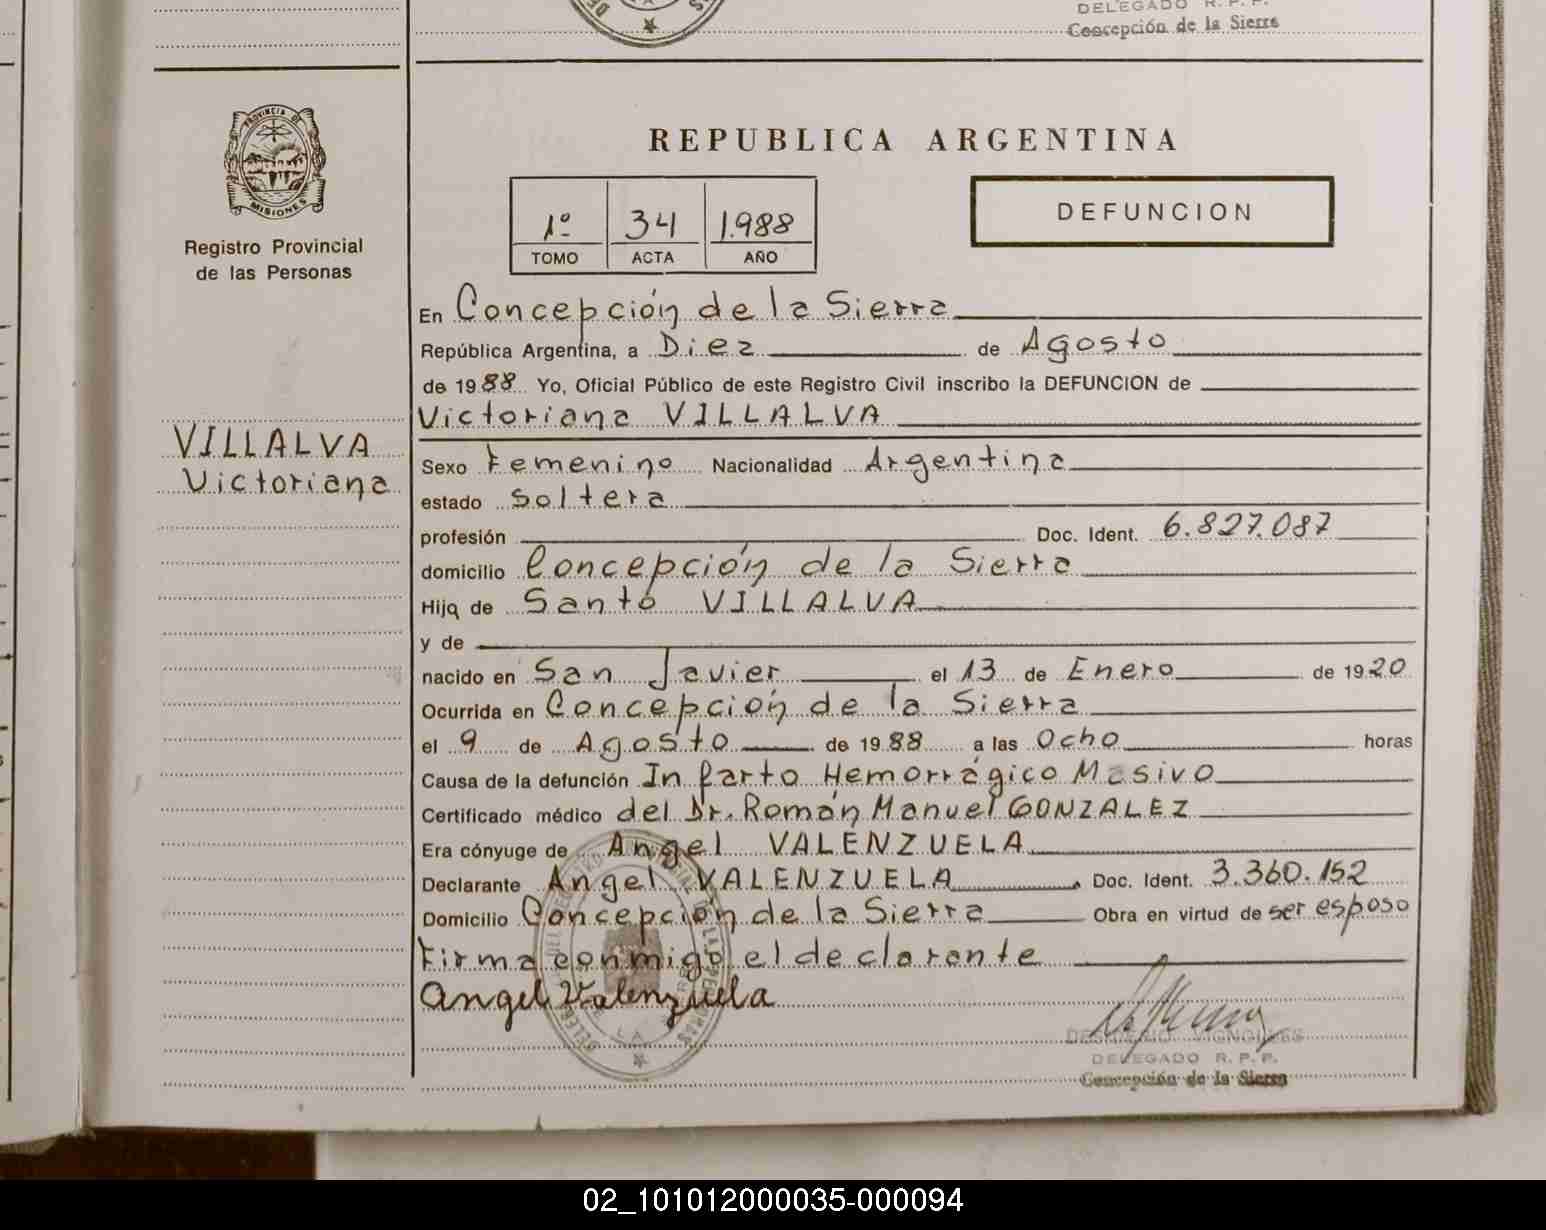 DELEGADO R. P. P.
Concepción de la Sierra
PROVINCIA DE
MISIONES
Registro Provincial
de las Personas
REPUBLICA ARGENTINA
1º 34 1.988
TOMO ACTA AÑO
DEFUNCION
En Concepción de la Sierra
República Argentina, a Diez de Agosto
de 1988 Yo, Oficial Público de este Registro Civil inscribo la DEFUNCION de
Victoriana VILLALVA
VILLALVA
Victoriana
Sexo Femenino Nacionalidad Argentina
estado Soltera
profesión Doc. Ident. 6.827.087
domicilio Concepción de la Sierra
Hija de Santo VILLALVA
y de
nacido en San Javier el 13 de Enero de 1920
Ocurrida en Concepción de la Sierra
el 9 de Agosto de 1988 a las Ocho horas
Causa de la defunción Infarto Hemorrágico Masivo
Certificado médico del Dr. Román Manuel GONZALEZ
Era cónyuge de Angel VALENZUELA
Declarante Angel VALENZUELA Doc. Ident. 3.360.152
Domicilio Concepción de la Sierra Obra en virtud de ser esposo
Firma conmigo el declarante
Angel Valenzuela
DELEGADO R. P. P.
Concepción de la Sierra
02_101012000035-000094